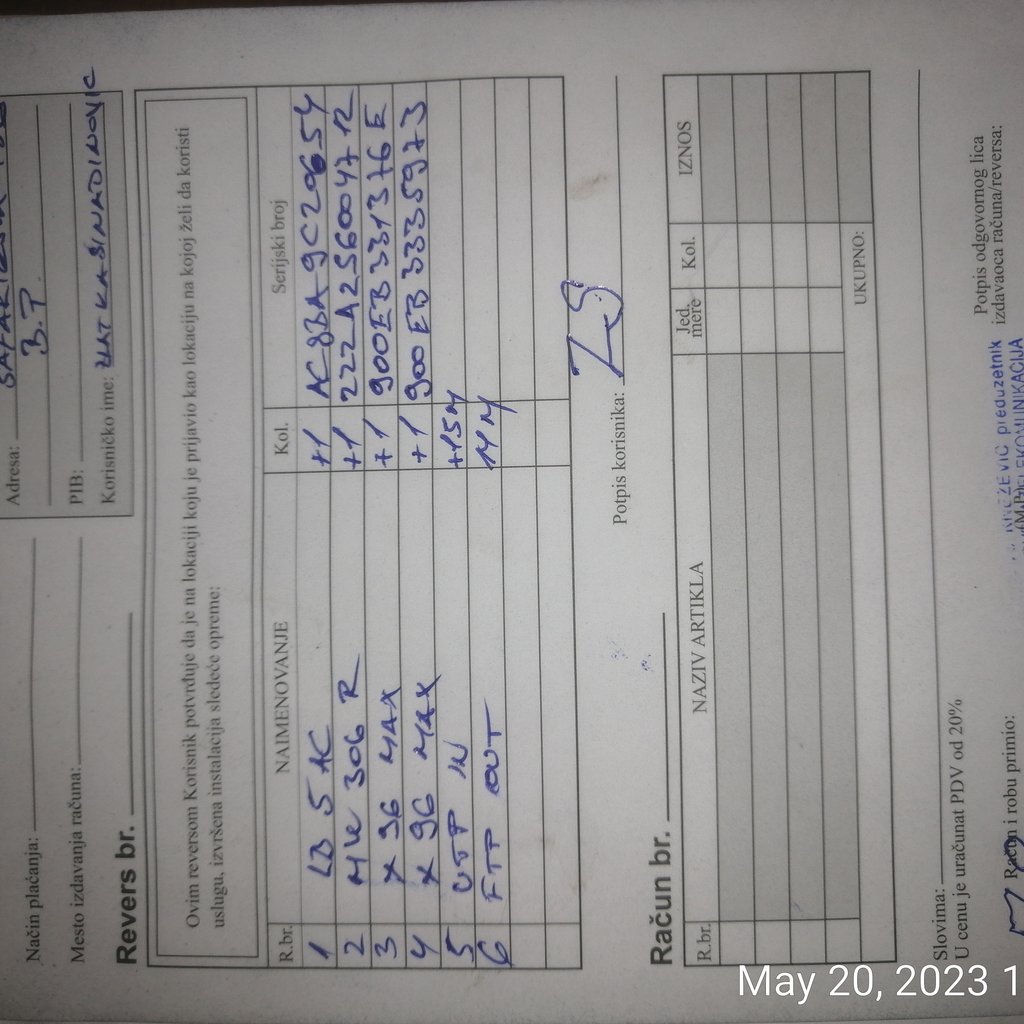 Način plaćanja:
Mesto izdavanja računa:
Adresa:
B.P
PIB:
Korisničko ime: ZLATKA SINADINOVIC
Revers br.
Ovim reversom Korisnik potvrđuje da je na lokaciji koju je prijavio kao lokaciju na kojoj želi da koristi
uslugu, izvršena instalacija sledeće opreme:
R.br. NAIMENOVANJE Kol. Serijski broj
1 LB 5 AC +1 AC8BA9C20654
2 MW 306 R +1 222A2560047 12
3 X 96 MAX +1 900EB331376E
4 X 96 MAX +1 900EB3335973
5 UTP IN +15M
6 FTP OUT 14M
Potpis korisnika:
Račun br.
R.br. NAZIV ARTIKLA Jed. mere Kol. IZNOS
UKUPNO:
Slovima:
U cenu je uračunat PDV od 20%
Račun i robu primio:
Potpis odgovornog lica
izdavaoca računa/reversa:
KNEŽEVIĆ preduzetnik
TELEKOMUNIKACIJA
May 20, 2023 1